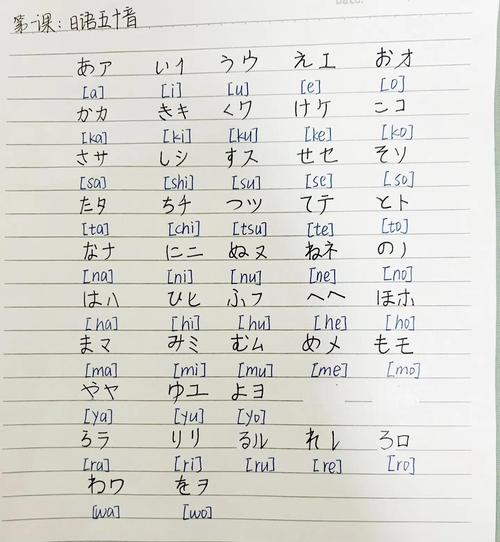 第一课:日语五十音
あア いイ うウ えエ おオ
[a] [i] [u] [e] [o]
かカ きキ くク けケ こコ
[ka] [ki] [ku] [ke] [ko]
さサ しシ すス せセ そソ
[sa] [shi] [su] [se] [so]
たタ ちチ つツ てテ とト
[ta] [chi] [tsu] [te] [to]
なナ にニ ぬヌ ねネ のノ
[na] [ni] [nu] [ne] [no]
はハ ひヒ ふフ へヘ ほホ
[ha] [hi] [hu] [he] [ho]
まマ みミ むム めメ もモ
[ma] [mi] [mu] [me] [mo]
やヤ ゆユ よヨ
[ya] [yu] [yo]
らラ りリ るル れレ ろロ
[ra] [ri] [ru] [re] [ro]
わワ をヲ
[wa] [wo]